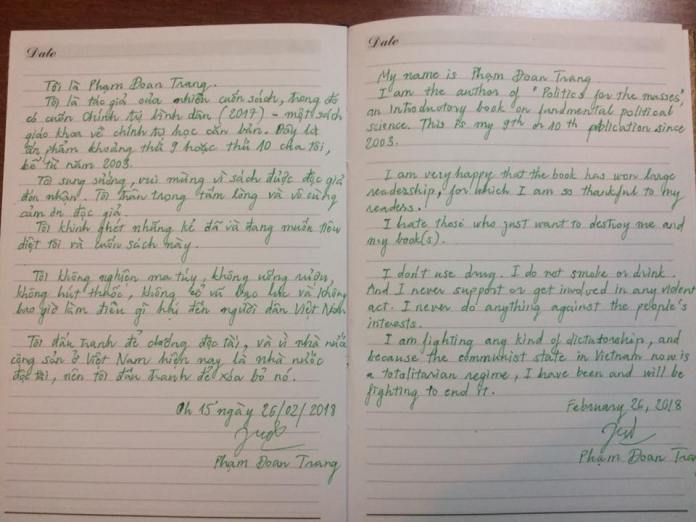 Date
Tôi là Phạm Đoan Trang.
Tôi là tác giả của nhiều cuốn sách, trong đó
có cuốn Chính trị bình dân (2017) - một sách
giáo khoa về chính trị học căn bản. Đây là
ấn phẩm khoảng thứ 9 hoặc thứ 10 của tôi,
kể từ năm 2003.
Tôi sung sướng, vui mừng vì sách được độc giả
đón nhận. Tôi trân trọng tấm lòng và vô cùng
cảm ơn độc giả.
Tôi khinh ghét những kẻ đã và đang muốn tiêu
diệt tôi và cuốn sách này.
Tôi không nghiện ma túy, không uống rượu,
không hút thuốc, không cổ vũ bạo lực và không
bao giờ làm điều gì hại đến người dân Việt Nam.
Tôi đấu tranh để chống độc tài, và vì nhà nước
cộng sản ở Việt Nam hiện nay là nhà nước
độc tài, nên tôi đấu tranh để xóa bỏ nó.
0h 15 ngày 26/02/2018
Phạm Đoan Trang
Date
My name is Phạm Đoan Trang
I am the author of "Politics for the masses",
an introductory book on fundmental political
science. This is my 9th or 10th publication since
2003.
I am very happy that the book has won large
readership, for which I am so thankful to my
readers.
I hate those who just want to destroy me and
my book(s).
I don't use drug. I do not smoke or drink.
And I never support or get involved in any violent
act. I never do anything against the people's
interests.
I am fighting any kind of dictatorship, and
because the communist state in Vietnam now is
a totalitarian regime, I have been and will be
fighting to end it.
February 26, 2018
Phạm Đoan Tra